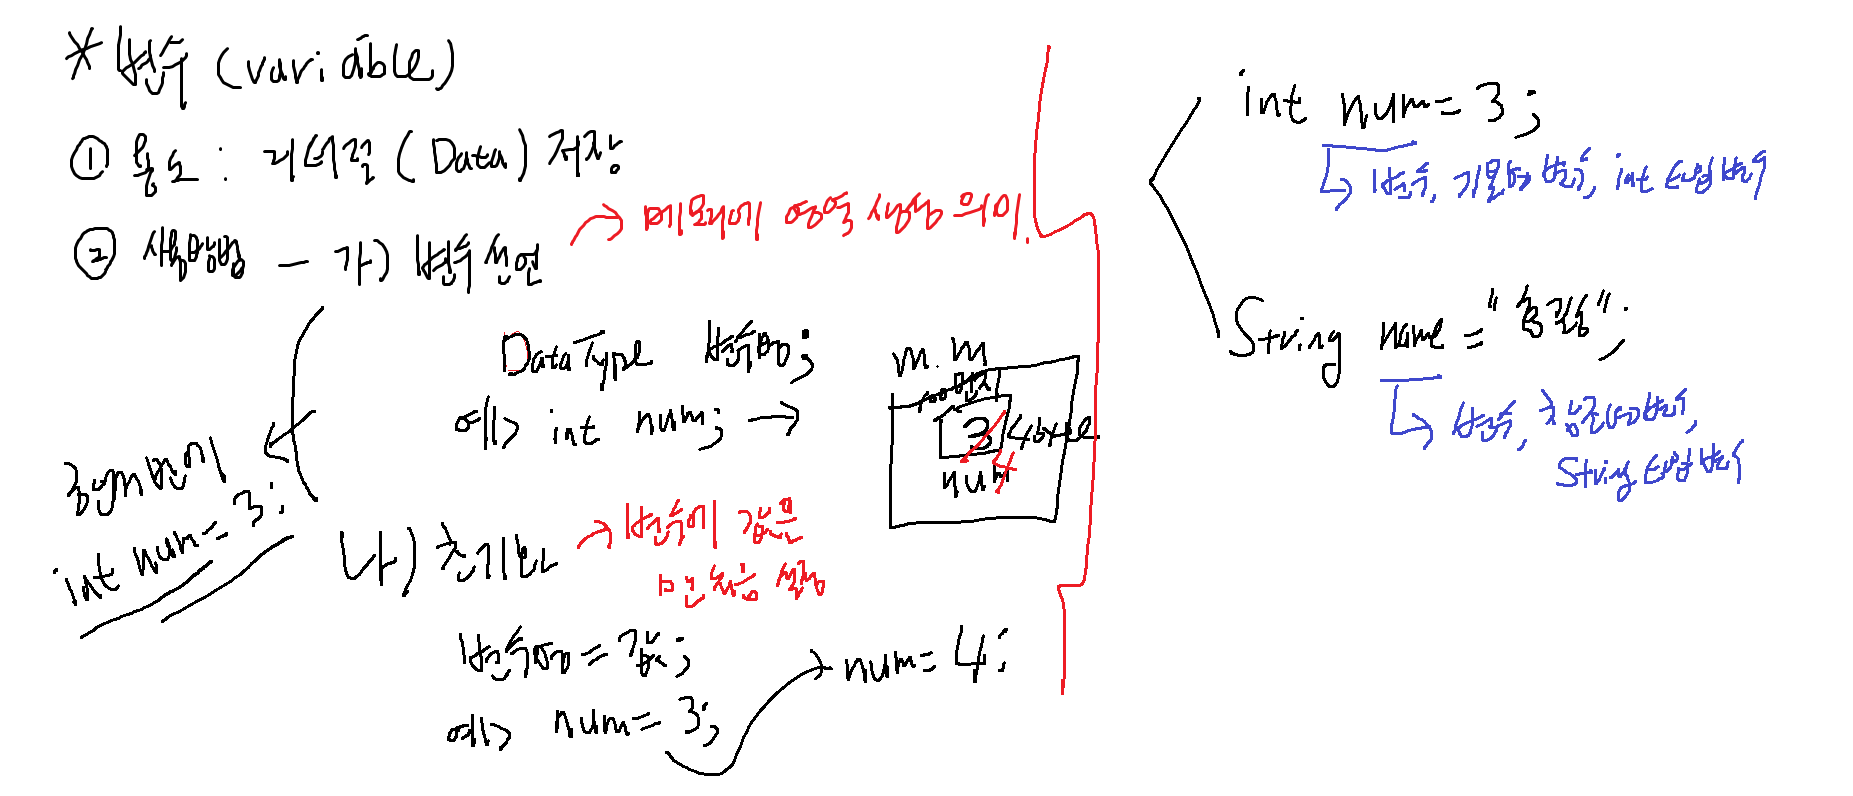 * 변수 (variable)
① 용도 : 리터럴 (Data) 저장
② 사용방법 - 가) 변수선언 → 메모리에 영역 생성 의미.
DataType 변수명;
예> int num; →
m.m
100번지
3 4 4byte
num
한꺼번에
int num = 3;
나) 초기화 → 변수에 값을
맨 처음 설정
변수명 = 값;
예> num = 3; → num = 4;
int num = 3;
↳ 변수, 기본형 변수, int 타입 변수
String name = "홍길동";
↳ 변수, 참조형 변수,
String 타입 변수